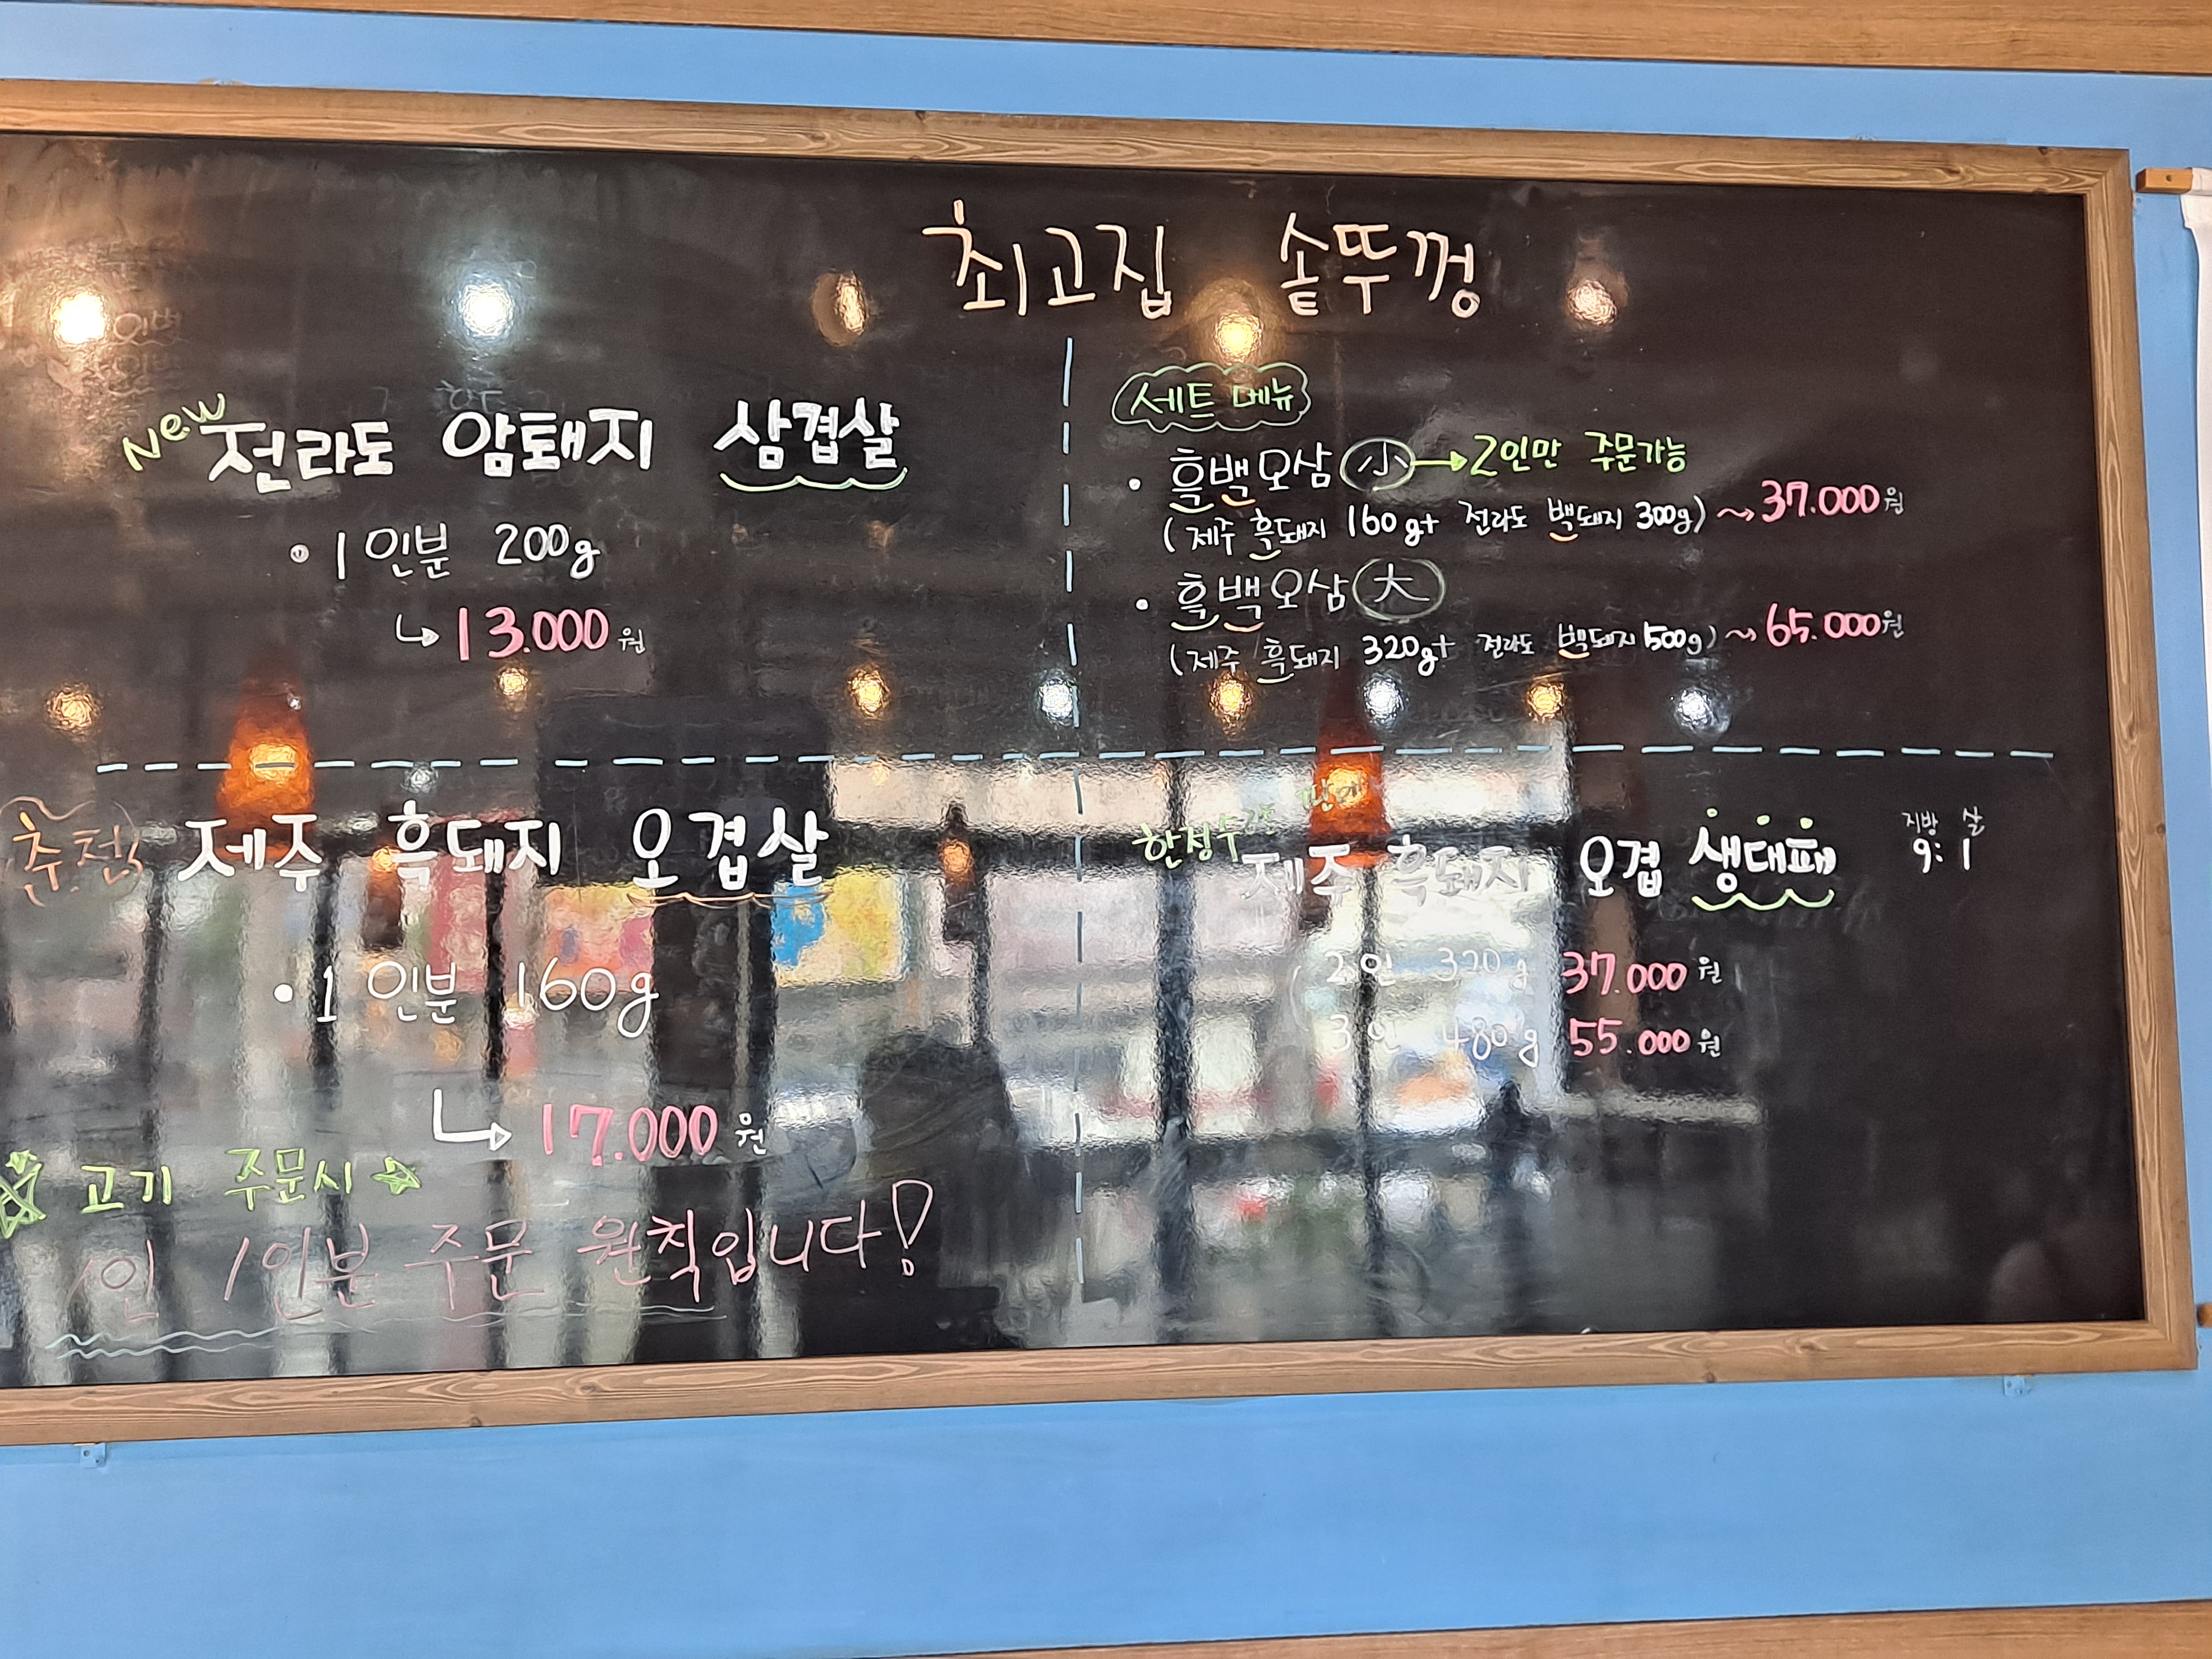 최고집 솥뚜껑
New 전라도 암퇘지 삼겹살
• 1인분 200g
↳ 13.000원
세트 메뉴
• 흑백오삼 小 → 2인만 주문가능
(제주 흑돼지 160g+ 전라도 백돼지 300g) ~> 37.000원
• 흑백오삼 大
(제주 흑돼지 320g+ 전라도 백돼지 500g) ~> 65.000원
추천 제주 흑돼지 오겹살
• 1인분 160g
↳ 17.000원
☆ 고기 주문시 ☆
1인 1인분 주문 원칙입니다!
한정수량 판매
제주 흑돼지 오겹 생대패
지방 살
9:1
2인 320g 37.000원
3인 480g 55.000원